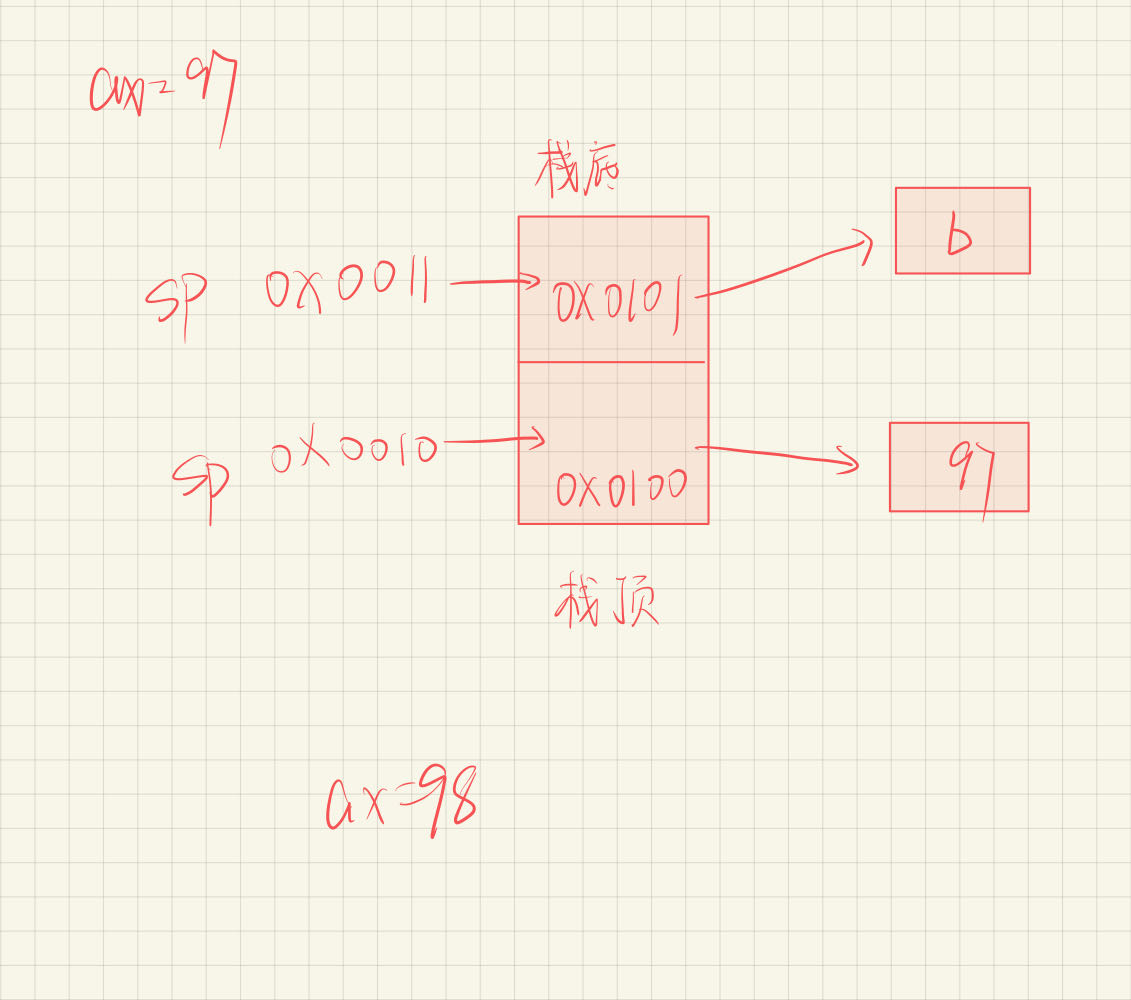 ax=97
栈底
b
SP 0X0011
0X0101
SP 0X0010
97
0X0100
栈顶
ax=98